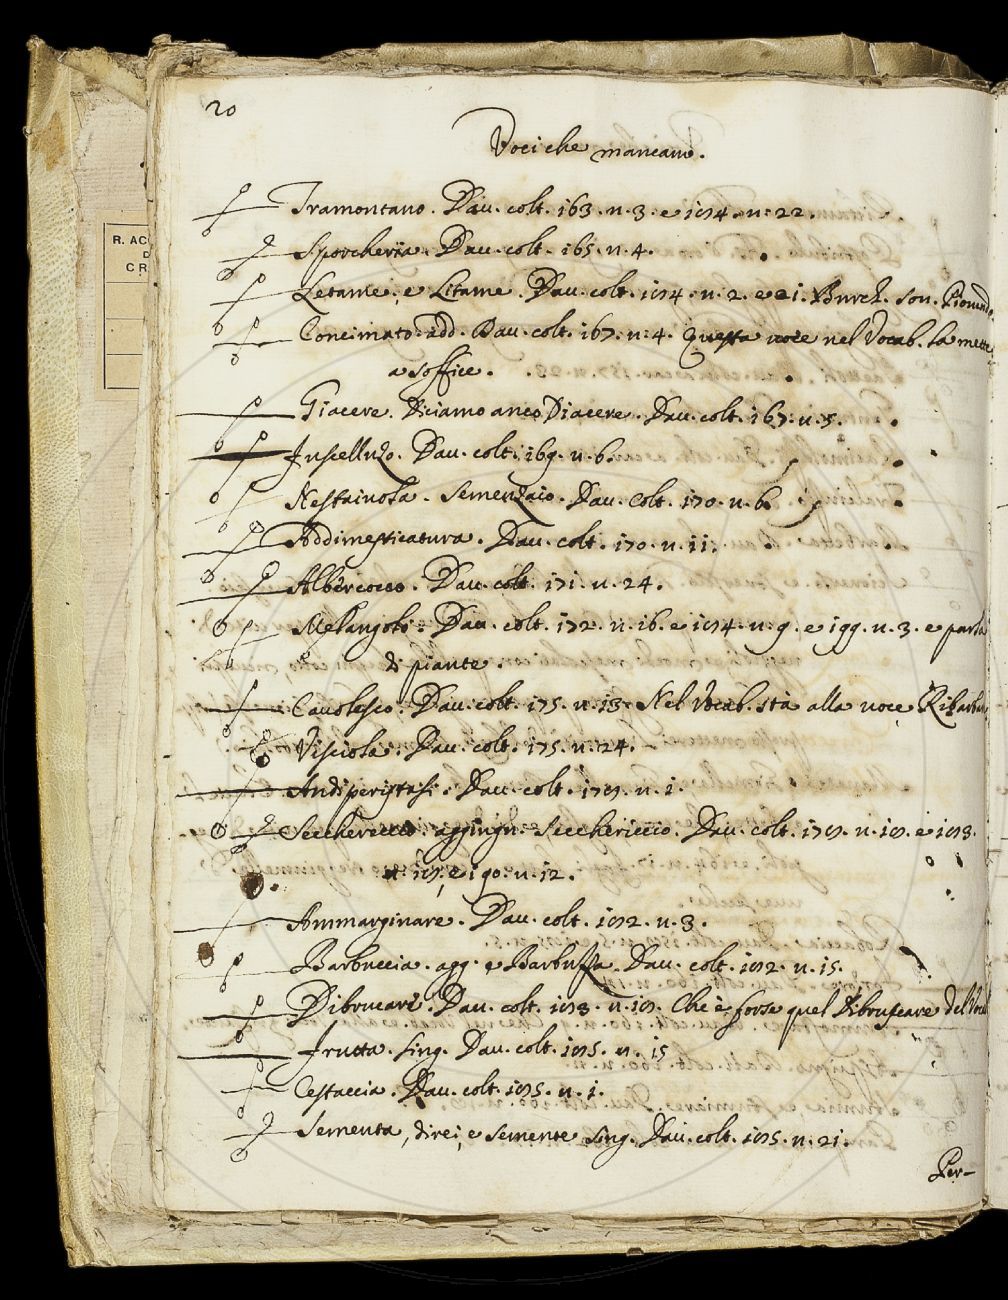 20
Voci che mancano.
Tramontano. Dau. colt. 163. n. 3. e 184. n. 22.
Sporcheria. Dau. colt. 165. n. 4.
Letame, e Litame. Dau. colt. 184. n. 2. e 21. Burch. son. Piovendo
R. AC
D
CR
Concimato add. Dau. colt. 167. n. 4. Questa voce nel Vocab. la mette
a soffice.
Giacere. Diciamo anco Diacere. Dau. colt. 167. n. 5.
Dau. colt. 169. n. 6.
Nestaiuola. Semenzaio. Dau. colt. 170. n. 6.
Addimesticatura. Dau. colt. 170. n. 11.
Albercocco. Dau. colt. 171. n. 24.
Melangolo. Dau. colt. 172. n. 16. e 184. n. 9. e 199. n. 3. e parla
di piante.
Cavolesco. Dau. colt. 175. n. 13. Nel Vocab. sta alla voce
Visciola. Dau. colt. 175. n. 24.
Antiperistasi. Dau. colt. 178. n. 1.
aggiugn. Secchericcio. Dau. colt. 178. n. 18. e 183.
n. 18. e 190. n. 12.
Ammarginare. Dau. colt. 182. n. 3.
Barbuccia. agg. e Dau. colt. 182. n. 15.
Dibrucare. Dau. colt. 183. n. 18. Che è forse quel Dibruscare del
Frutta. sing. Dau. colt. 185. n. 15
Cestaccia. Dau. colt. 185. n. 1.
Sementa, direi, e semente sing. Dau. colt. 185. n. 21.
Per-